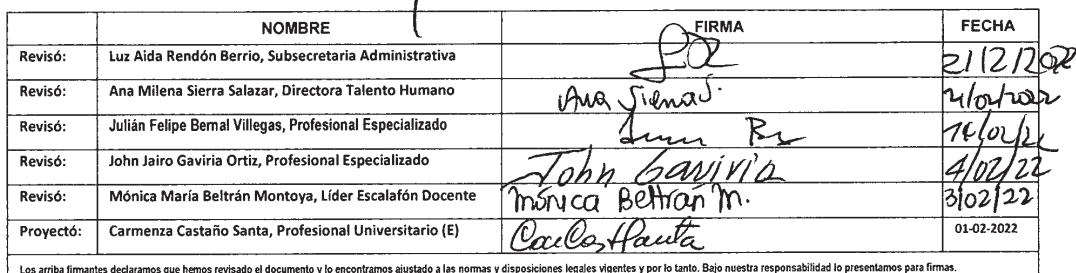 NOMBRE FIRMA FECHA
Revisó: Luz Aida Rendón Berrio, Subsecretaria Administrativa 21/2/2022
Revisó: Ana Milena Sierra Salazar, Directora Talento Humano Ana Sierra S.
Revisó: Julián Felipe Bernal Villegas, Profesional Especializado
Revisó: John Jairo Gaviria Ortiz, Profesional Especializado John Gaviria 4/02/22
Revisó: Mónica María Beltrán Montoya, Líder Escalafón Docente Mónica Beltrán M. 3/02/22
Proyectó: Carmenza Castaño Santa, Profesional Universitario (E) 01-02-2022
Los arriba firmantes declaramos que hemos revisado el documento y lo encontramos ajustado a las normas y disposiciones legales vigentes y por lo tanto. Bajo nuestra responsabilidad lo presentamos para firmas.